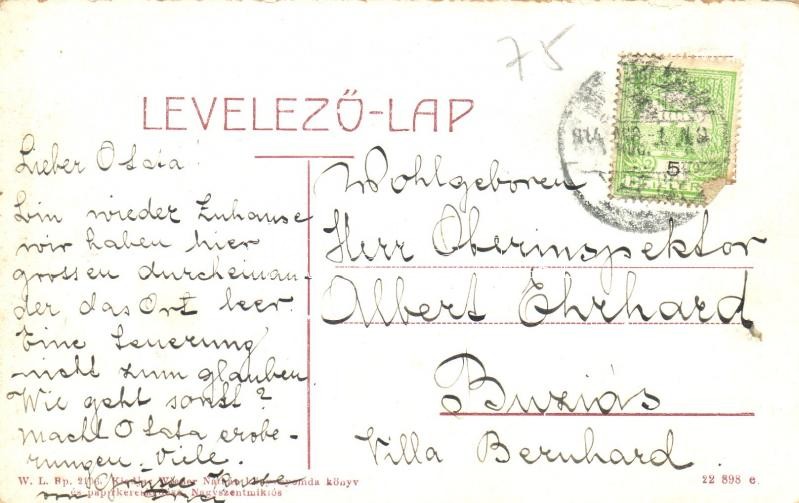 75
LEVELEZŐ-LAP
Lieber Otata!
bin wieder Zuhause
wir haben hier
grossen durcheinan-
der das Ort leer.
Eine Teuerung
nicht zum glauben
Wie geht sonst?
Macht Otata erobe-
rungen. Viele
Grüsse
Wohlgeboren
Herr Oberinspektor
Albert Ehrhard
Buziás
Villa Bernhard.
5
W. L. Bp. Wiener Nátán könyvnyomda könyv
és papirkereskedése, Nagyszentmiklós
22 898 e.